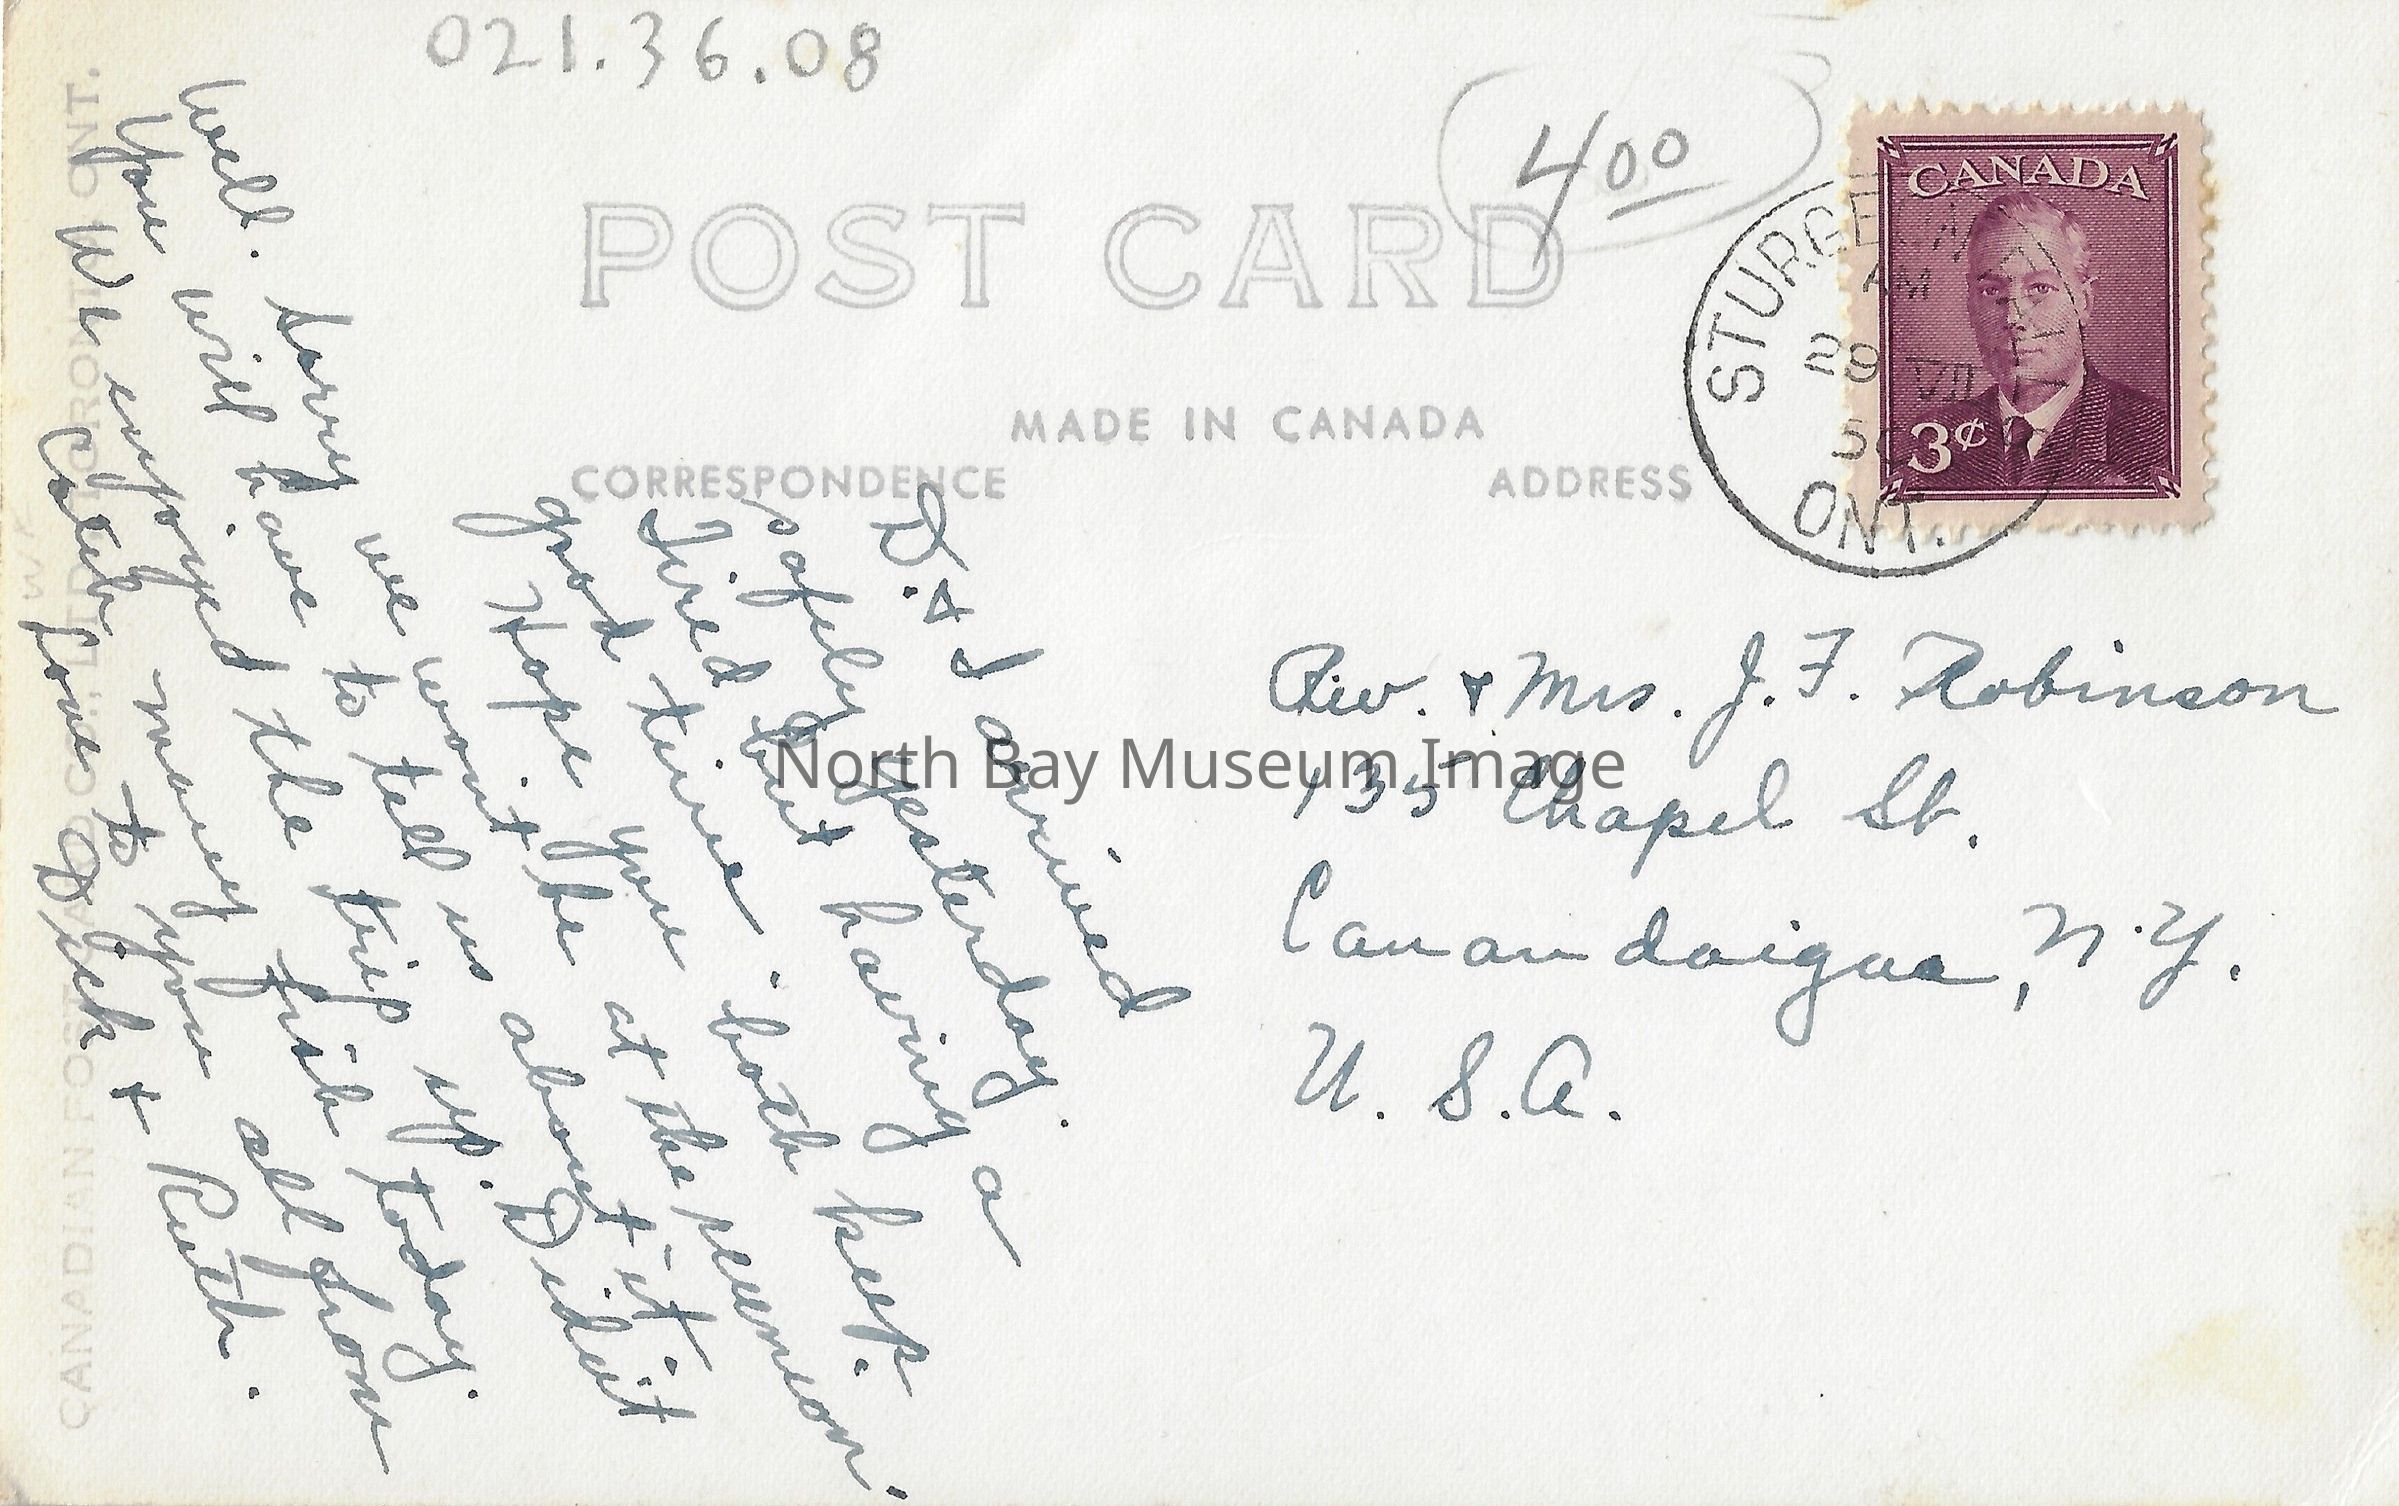 021.36.08
4.00
POST CARD
MADE IN CANADA
CORRESPONDENCE
ADDRESS
CANADA
3¢
STURGE
AM
28 VII
50
ONT.
D. & I arrived
safely yesterday.
Tired but having a
good time. both keep.
Hope you at the reunion.
Well. Sorry we won't be about it.
You will have to tell us Didn't
We enjoyed the trip up.
Catch many fish today.
Love to you all from
Dick & Ruth.
Rev. & Mrs. J. F. Robinson
135 Chapel St.
Canandaigua, N.Y.
U. S. A.
CANADIAN POST CARD CO., LTD. TORONTO, ONT.
North Bay Museum Image